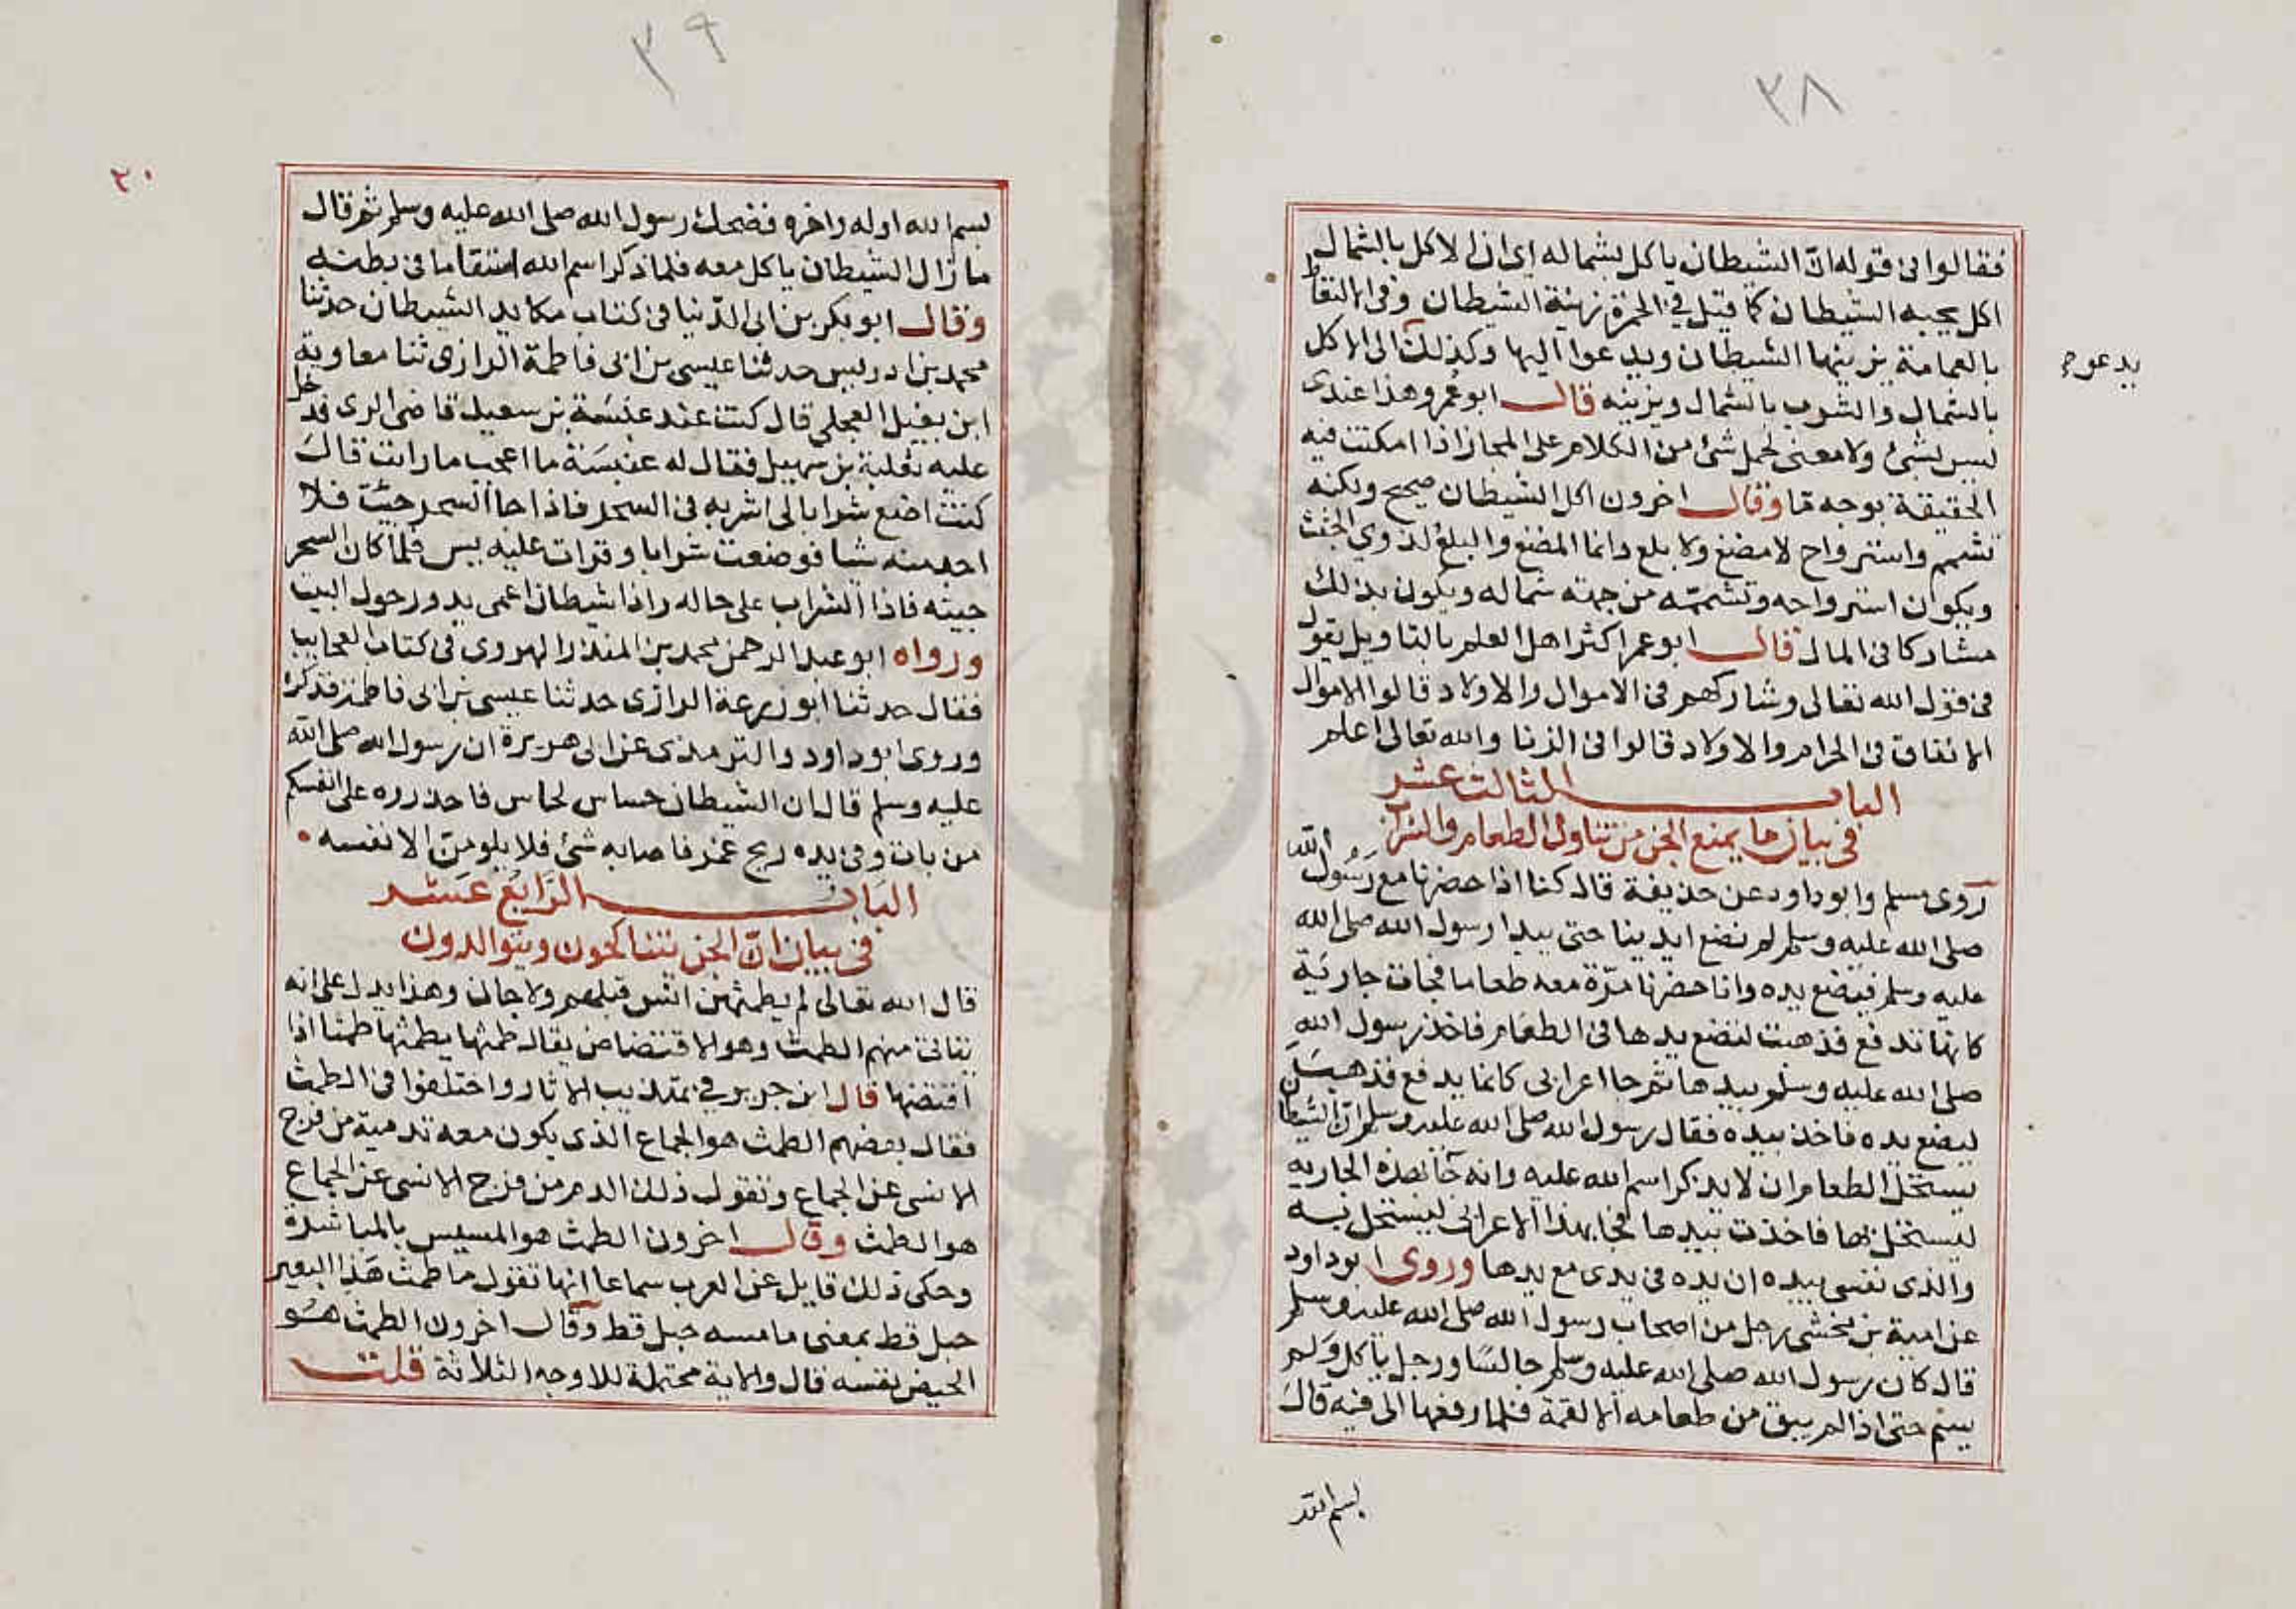 ٣٨
فقالوا فى قوله ان الشيطان ياكل بشماله اى ان الاكل بالشمال
اكل يحبه الشيطان كما قيل فى الحمرة زينة الشيطان وفى الالتقاط
بالعمامة يزينها الشيطان ويدعوا اليها وكذلك الى الاكل
يدعو
بالشمال والشرب بالشمال ويزينه قال ابو عمر وهذا عندى
ليس بشئ ولا معنى لحمل شئ من الكلام على المجاز اذا امكنت فيه
الحقيقة بوجه ما وقال اخرون اكل الشيطان صحيح ولكنه
تشمم واسترواح لا مضغ ولا بلع وانما المضغ والبلع لذوي الجثث
ويكون استرواحه وتشممه من جهة شماله ويكون بذلك
مشاركا فى المال قال ابو عمر اكثر اهل العلم بالتاويل يقول
فى قول الله تعالى وشاركهم فى الاموال والاولاد قالوا الاموال
الانفاق فى الحرام والاولاد قالوا فى الزنا والله تعالى اعلم
الباب الثالث عشر
فى بيان ما يمنع الجن من تناول الطعام والشراب
روى مسلم وابو داود عن حذيفة قال كنا اذا حضرنا مع رسول الله
صلى الله عليه وسلم لم نضع ايدينا حتى يبدا رسول الله صلى الله
عليه وسلم فيضع يده وانا حضرنا مرة معه طعاما فجات جارية
كانها تدفع فذهبت لتضع يدها فى الطعام فاخذ رسول الله
صلى الله عليه وسلم بيدها ثم جا اعرابى كانما يدفع فذهب
ليضع يده فاخذ بيده فقال رسول الله صلى الله عليه وسلم ان الشيطان
يستحل الطعام ان لا يذكر اسم الله عليه وانه جا بهذه الجاريه
ليستحل بها فاخذت بيدها فجا بهذا الاعرابى ليستحل به
والذى نفسى بيده ان يده فى يدى مع يدها وروى ابو داود
عن امية بن مخشى رجل من اصحاب رسول الله صلى الله عليه وسلم
قال كان رسول الله صلى الله عليه وسلم جالسا ورجل ياكل ولم
يسم حتى اذا لم يبق من طعامه الا لقمة فلما رفعها الى فيه قال
بسم الله
٣٩
٢٠
بسم الله اوله واخره فضحك رسول الله صلى الله عليه وسلم ثم قال
ما زال الشيطان ياكل معه فلما ذكر اسم الله استقا ما فى بطنه
وقال ابو بكر بن ابى الدنيا فى كتاب مكايد الشيطان حدثنا
محمد بن ادريس حدثنا عيسى بن ابى فاطمة الرازى ثنا معاوية
ابن نفيل العجلى قال كنت عند عنبسة بن سعيد قاضى الرى فدخل
عليه ثعلبة بن سهيل فقال له عنبسة ما اعجب ما رايت قال
كنت اضع شرابا لى اشربه فى السحر فاذا جا السحر جيت فلا
اجد منه شيا فوضعت شرابا وقرات عليه يس فلما كان السحر
جيته فاذا الشراب على حاله واذا شيطان اعمى يدور حول البيت
ورواه ابو عبد الرحمن محمد بن المنذر الهروى فى كتاب العجايب
فقال حدثنا ابو زرعة الرازى حدثنا عيسى بن ابى فاطمة فذكره
وروى ابو داود والترمذى عن ابى هريرة ان رسول الله صلى الله
عليه وسلم قال ان الشيطان حساس لحاس فاحذروه على انفسكم
من بات وفى يده ريح غمر فاصابه شئ فلا يلومن الا نفسه
الباب الرابع عشر
فى بيان ان الجن يتناكحون ويتوالدون
قال الله تعالى لم يطمثهن انس قبلهم ولا جان وهذا يدل على انه
يتاتى منهم الطمث وهو الاقتضاض يقال طمثها يطمثها طمثا اذا
افتضها قال ابن جرير فى تهذيب الاثار واختلفوا فى الطمث
فقال بعضهم الطمث هو الجماع الذى يكون معه تدمية من فرج
الانسى عن الجماع ونقول ذلك الدم من فرج الانسى عن الجماع
هو الطمث وقال اخرون الطمث هو المسيس بالمباشرة
وحكى ذلك قايل عن العرب سماعا انها تقول ما طمث هذا البعير
حبل قط بمعنى ما مسه حبل قط وقال اخرون الطمث هو
الحيض نفسه قال والاية محتملة للاوجه الثلاثة قلت